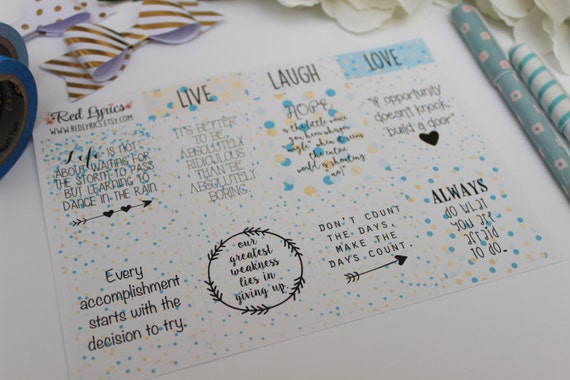 Red Lyrics
WWW.REDLYRICS.ETSY.COM
LIVE
LAUGH
LOVE
Life IS NOT
ABOUT WAITING FOR
THE STORM TO PASS
BUT LEARNING TO
DANCE IN THE RAIN
IT'S BETTER
TO BE
ABSOLUTELY
RIDICULOUS
THAN BE
ABSOLUTELY
BORING.
HOPE
is the little voice
you hear whisper
"maybe" when it seems
the entire
world is shouting
no!
"If opportunity
doesn't knock,
build a door"
Every
accomplishment
starts with the
decision to try.
our
greatest
weakness
lies in
giving up.
DON'T COUNT
THE DAYS,
MAKE THE
DAYS COUNT.
ALWAYS
DO WHAT
YOU ARE
AFRAID
TO DO.